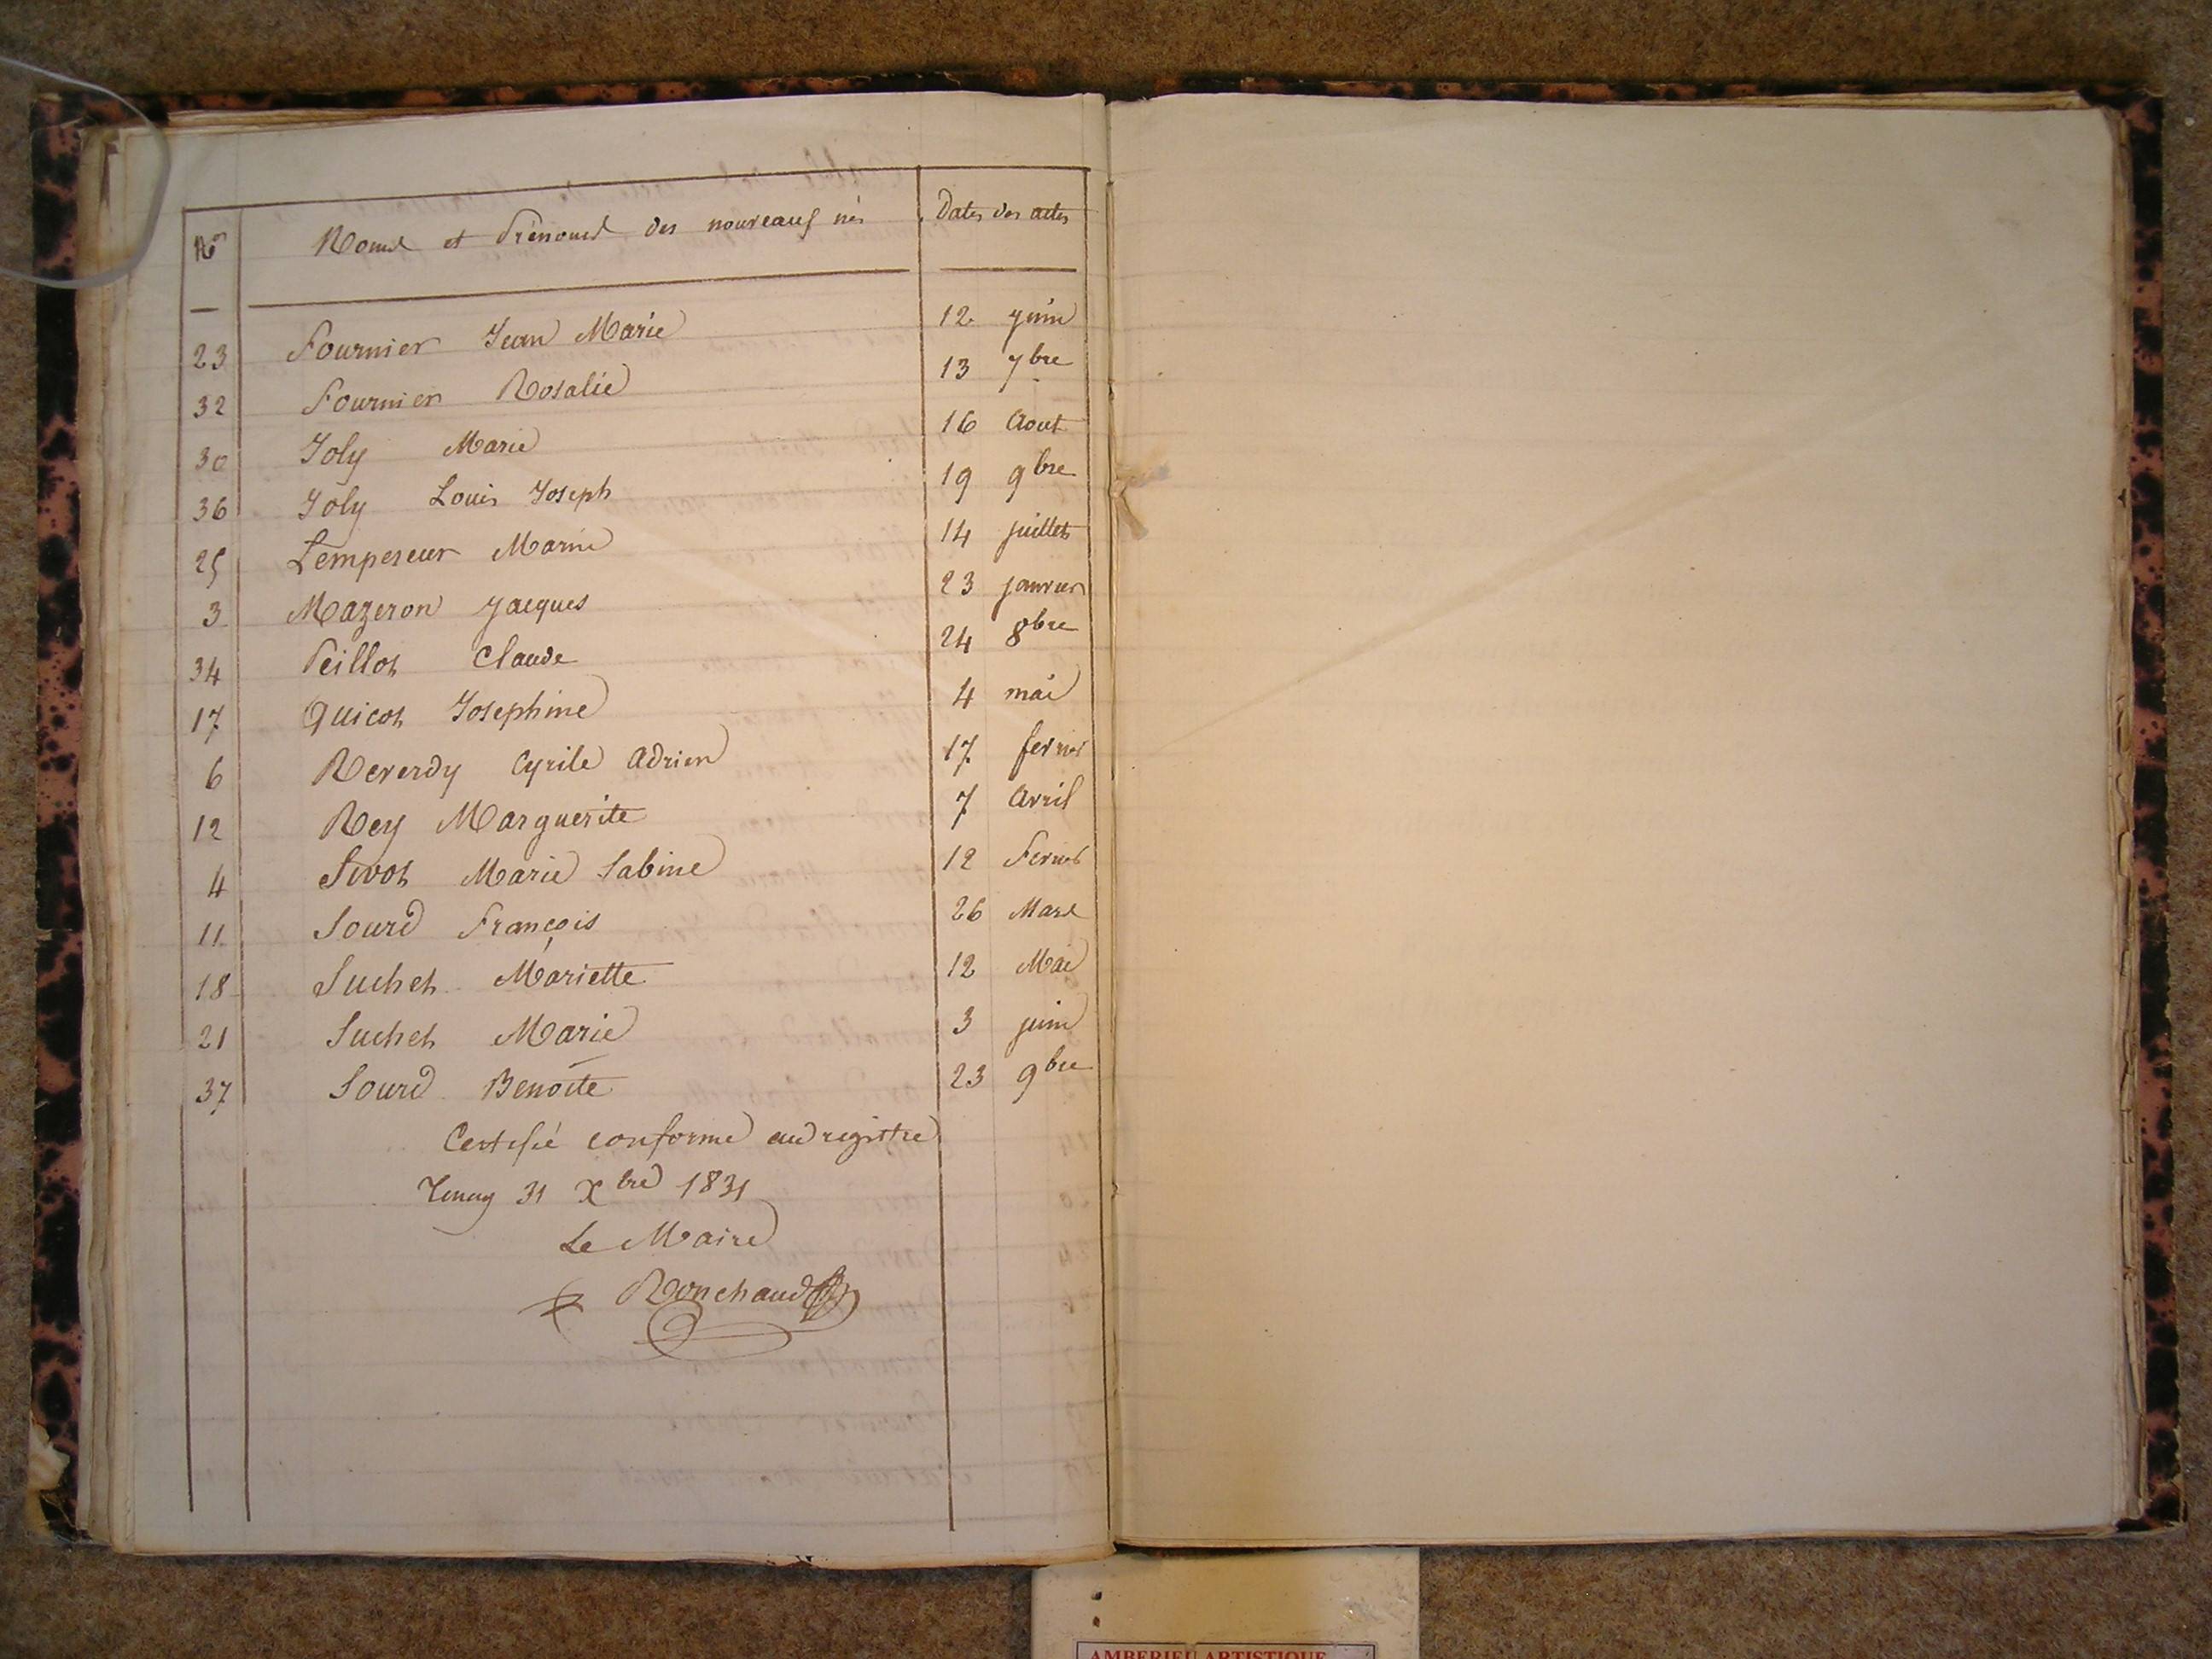 Nos Noms et Prénoms des nouveaux nés Dates des actes
23 Fournier Jean Marie 12 juin
32 Fournier Rosalie 13 7bre
30 Joly Marie 16 Aout
36 Joly Louis Joseph 19 9bre
25 Lempereur Marie 14 juillet
3 Mazeron Jacques 23 janvier
34 Peillot Claude 24 8bre
17 Quicot Josephine 4 mai
6 Reverdy Cyrile Adrien 17 fevrier
12 Rey Marguerite 7 Avril
4 Sivot Marie Sabine 12 Fevrier
11 Sourd François 26 Mars
18 Suchet Mariette 12 Mai
21 Suchet Marie 3 juin
37 Sourd Benoite 23 9bre
Certifié conforme au registre
Tenay 31 Xbre 1831
Le Maire
Ronchaud
AMBERIEU ARTISTIQUE